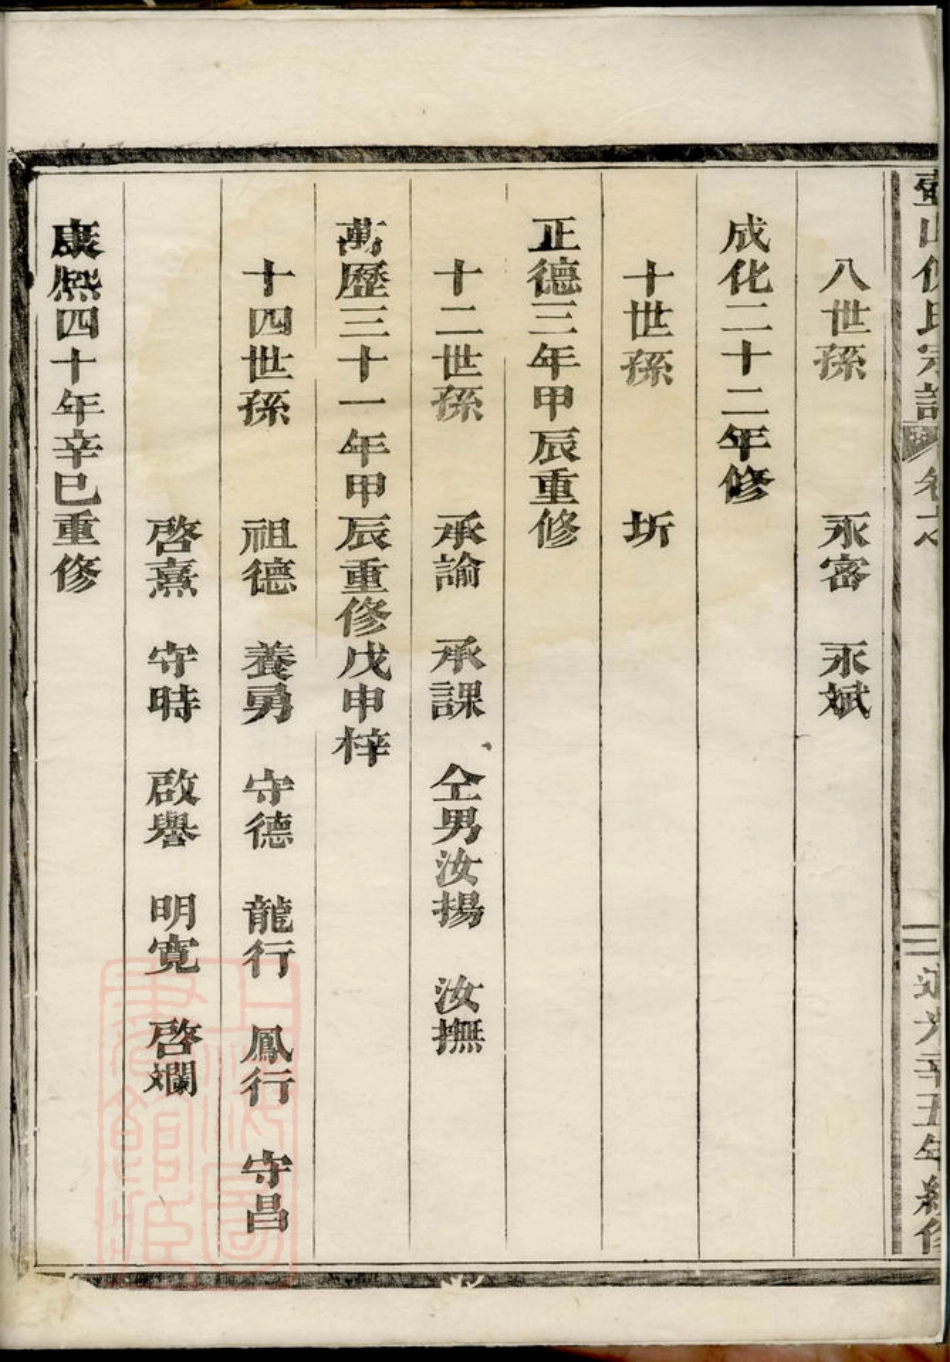 壺山倪氏宗譜 卷
三 道光辛丑年續修
八世孫 永密 永斌
成化二十二年修
十世孫 圻
正德三年甲辰重修
十二世孫 承諭 承課 仝男汝揚 汝撫
萬歷三十一年甲辰重修戊申梓
十四世孫 祖德 養勇 守德 龍行 鳳行 守昌
啓熹 守時 啟譽 明寬 啓斕
康熙四十年辛巳重修